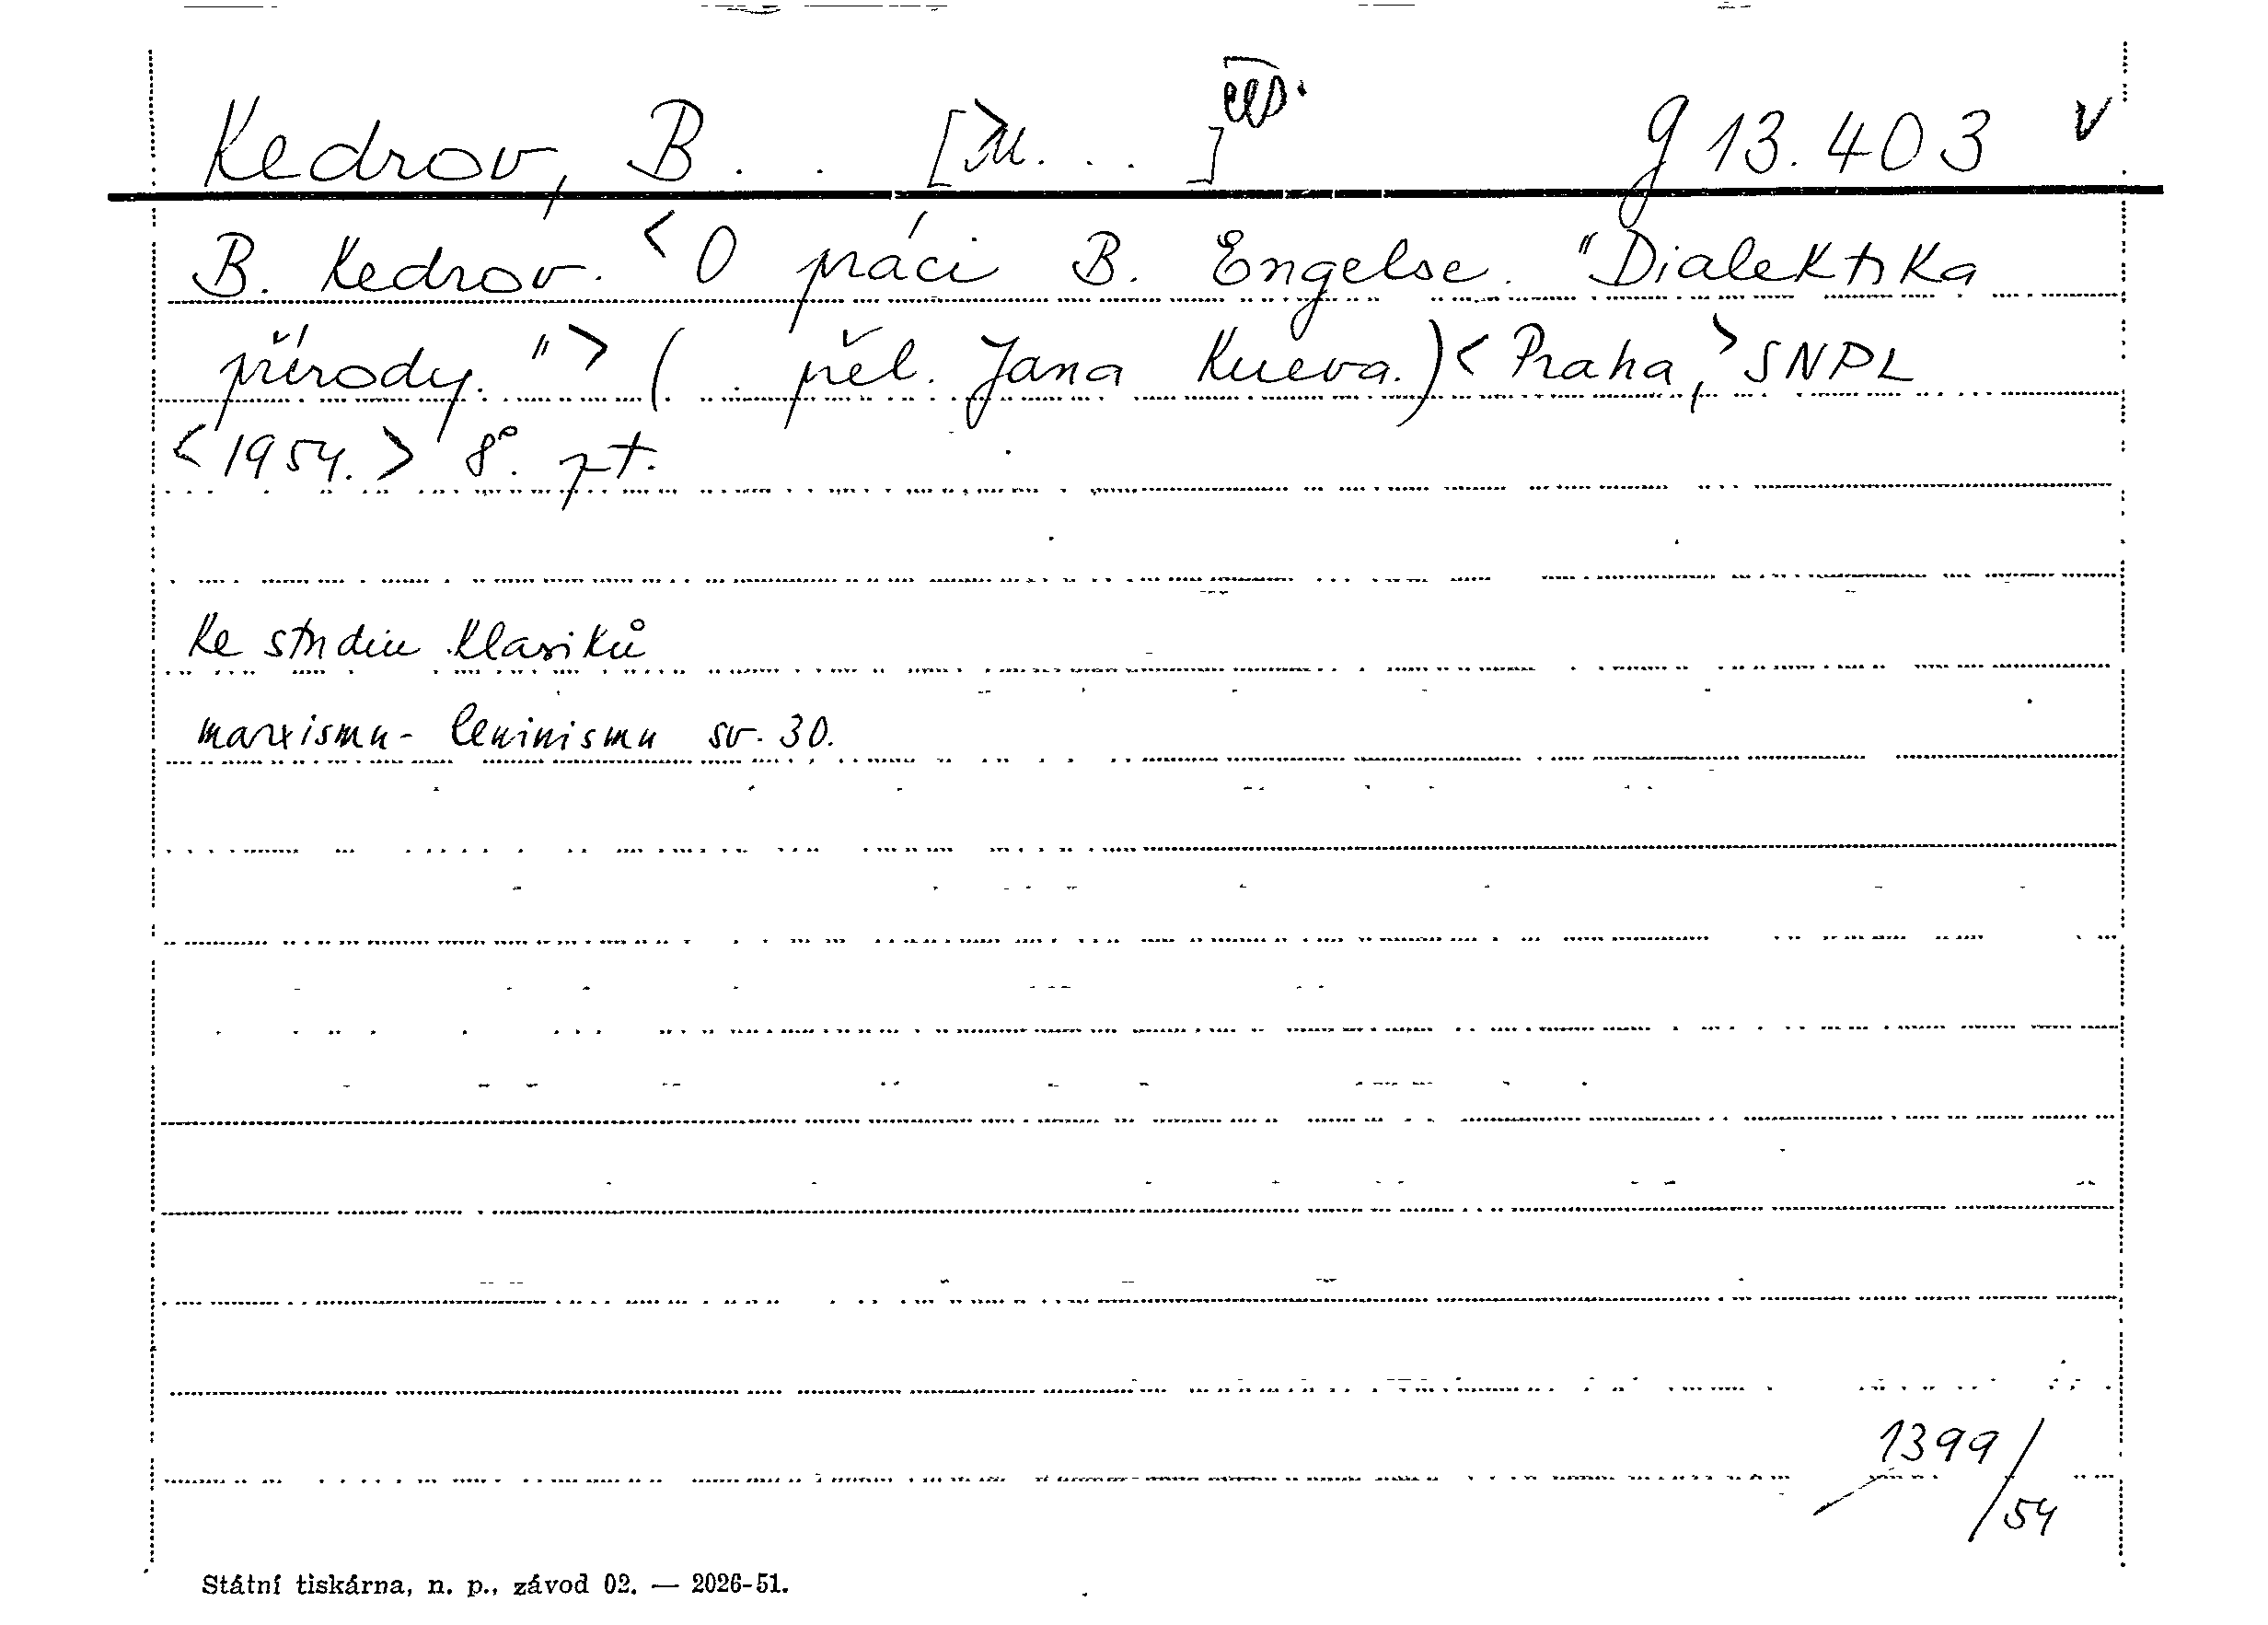 Kedrov, B. . [M. . . ] g 13.403 v
B. Kedrov. <O práci B. Engelse. "Dialektika
přírody."> ( . přel. Jana Kueva.) <Praha,> SNPL
<1954.> 8°. pt.
Ke studiu klasiků
marxismu-leninismu sv. 30.
1399/54
Státní tiskárna, n. p., závod 02. — 2026-51.